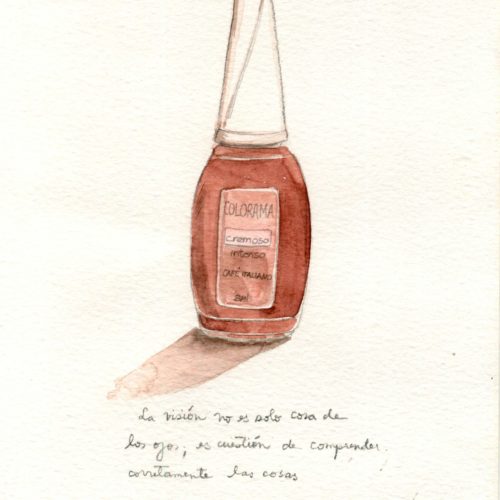 COLORAMA
cremoso
intenso
CAFÉ ITALIANO
8ml
La visión no es solo cosa de
los ojos, es cuestión de comprender
corretamente las cosas